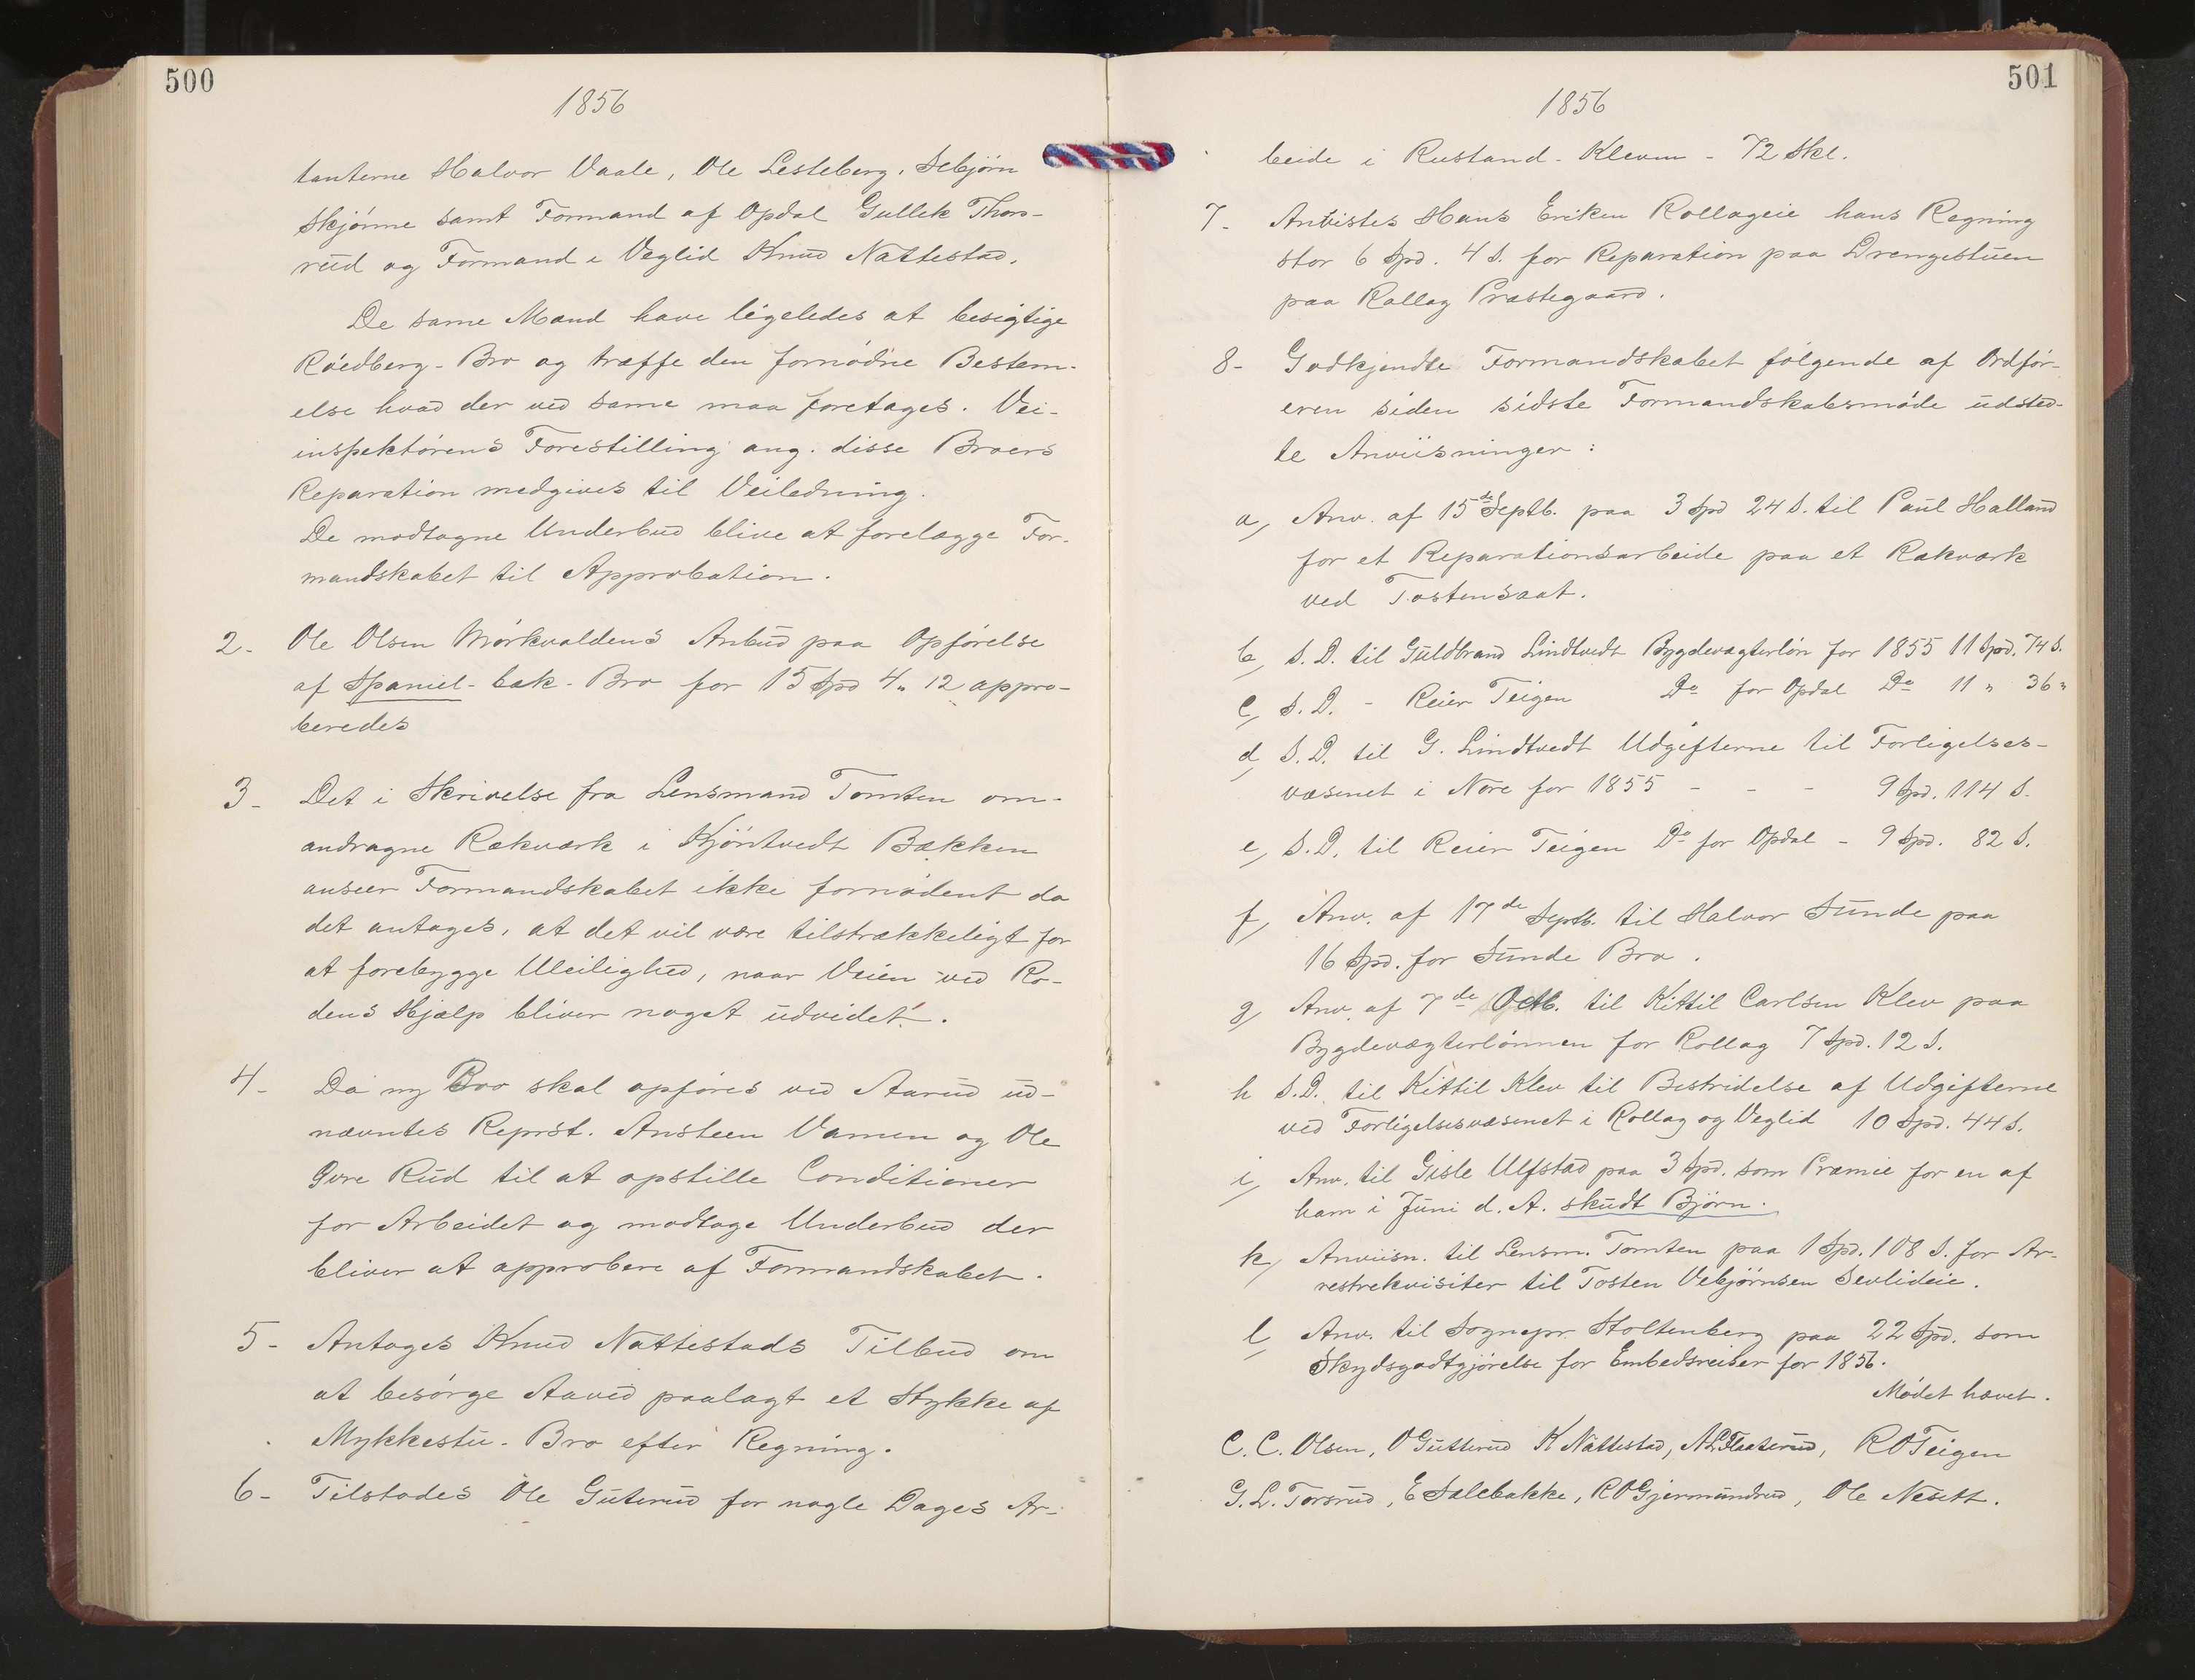 500
1856
tanterne Halvor Vaale, Ole Lesteberg, Sebjørn
Skjønne samt Formand af Opdal Gullek Thors-
rud og Formand i Veglid Knud Nattestad.
De same Mænd have ligeledes at besigtige
Rødberg-Bro og træffe den fornødne Bestem-
else hvad der ved same maa foretages. Vei-
inspektørens Forestilling ang. disse Broers
Reparation medgives til Veiledning.
De modtagne Underbud blive at forelægge For-
mandskabet til Approbation.
2- Ole Olsen Mørkvoldens Anbud paa Opførelse
af Spaniel-bæk-Bro for 15 Spd 4 " 12 appro-
beredes
3- Det i Skrivelse fra Lensmand Tomten om-
andragne Rækværk i Kjøntvedt Bækken
anseer Formandskabet ikke fornødent da
det antages, at det vil være tilstrækkeligt for
at forebygge Uleilighed, naar Veien ved Ro-
dens Hjælp bliver noget udvidet.
4- Da ny Bro skal opføres ved Aarud ud-
nævntes Reprst. Ansteen Vamen og Ole
Øvre Rud til at opstille Conditioner
for Arbeidet og modtage Underbud der
bliver at approbere af Formandskabet.
5- Antages Knud Nattestads Tilbud om
at besørge Aaved paalagt et Stykke af
Mykkestu-Bro efter Regning.
6- Tilstodes Ole Guterud for nogle Dages Ar-
501
1856
beide i Rustand-Kleven - 72 Skl.
7- Anvistes Hans Eriken Rollageie hans Regning
stor 6 Spd. 4 S. for Reparation paa Drengestuen
paa Rollag Præstegaard.
8- Godkjendte Formandskabet følgende af Ordfør-
eren siden sidste Formandskabsmøde udsted-
te Anviisninger:
a, Anv. af 15de Septb. paa 3 Spd 24 S. til Paul Halland
for et Reparationsarbeide paa et Rækværk
ved Tostensaat.
b, S. D. til Guldbrand Lindtvedt Bygdevægterløn for 1855 11 Spd. 74 S.
c, S. D. - Reier Teigen Do for Opdal Do 11 " 36 "
d, S. D. til G. Lindtvedt Udgifterne til Forligelses-
væsenet i Nore for 1855 - - - 9 Spd. 114 S.
e, S. D. til Reier Teigen Do for Opdal - 9 Spd. 82 S.
f, Anv. af 17de Septb. til Halvor Sunde paa
16 Spd. for Sunde Bro.
g, Anv. af 7de Octb. til Kittil Carlsen Klev paa
Bygdevægterlønnen for Rollag 7 Spd. 12 S.
h S.D. til Kittil Klev til Bestridelse af Udgifterne
ved Forligelsesvæsenet i Rollag og Veglid 10 Spd. 44 S.
i, Anv. til Gisle Ulfstad paa 3 Spd. som Præmie for en af
ham i Juni d. A. skudt Bjørn.
k, Anviisn. til Lensm. Tomten paa 1 Spd. 108 S. for Ar-
restrekvisiter til Tosten Vebjørnsen Sevlideie.
l, Anv. til Sognepr. Stoltenberg paa 22 Spd. som
Skydsgodtgjørelse for Embedsreiser for 1856.
Mødet hævet.
C. C. Olsen, O Gutterud K Nattestad, N L Flaaterud, R O Teigen
G. L. Torsrud, E Salebakke, R O Gjermundrud, Ole Nesett.